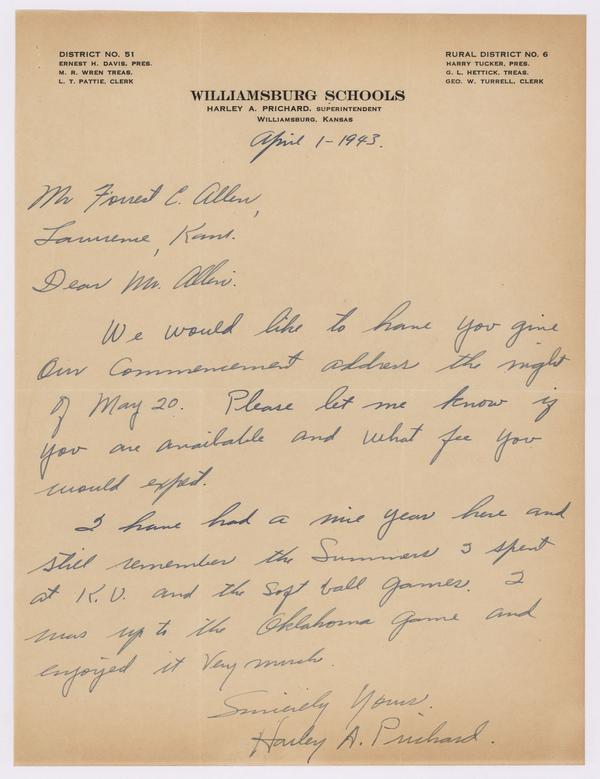 DISTRICT NO. 51
ERNEST H. DAVIS, PRES.
M. R. WREN TREAS.
L. T. PATTIE, CLERK
RURAL DISTRICT NO. 6
HARRY TUCKER, PRES.
G. L. HETTICK, TREAS.
GEO. W. TURRELL, CLERK
WILLIAMSBURG SCHOOLS
HARLEY A. PRICHARD, SUPERINTENDENT
WILLIAMSBURG, KANSAS
April 1-1943.
Mr Forrest C. Allen,
Lawrence, Kans.
Dear Mr. Allen.
We would like to have you give
Our Commencement address the night
of May 20. Please let me know if
you are available and what fee you
would expect.
I have had a nice year here and
still remember the Summers I spent
at K.U. and the soft ball games. I
was up to the Oklahoma game and
enjoyed it very much.
Sincerely Yours.
Harley A. Prichard.